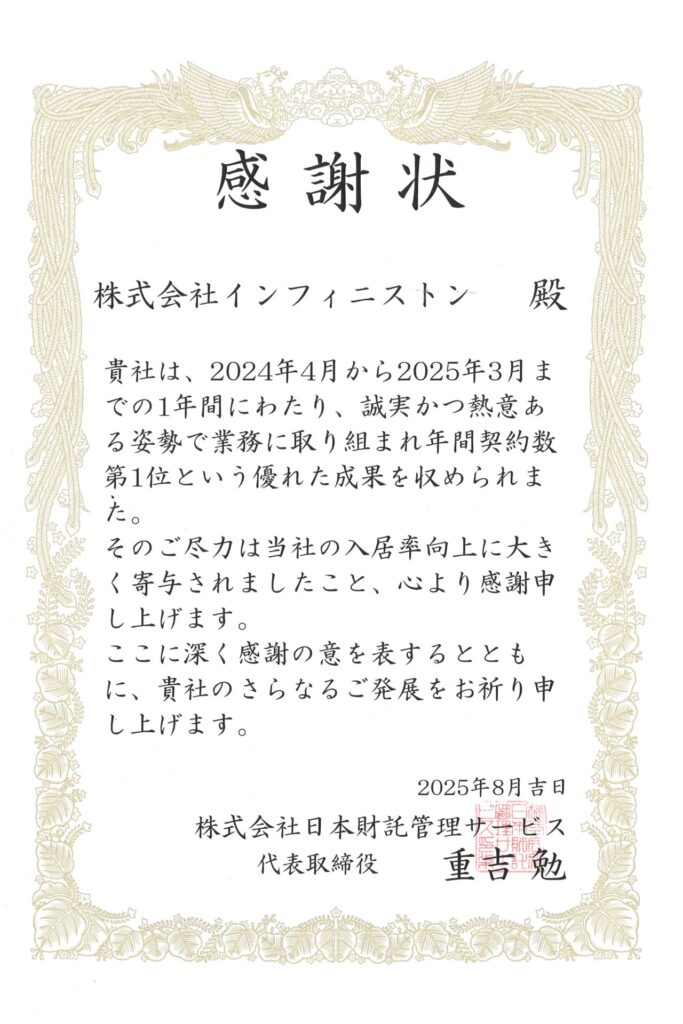 感謝状
株式会社インフィニストン 殿
貴社は、2024年4月から2025年3月ま
での1年間にわたり、誠実かつ熱意あ
る姿勢で業務に取り組まれ年間契約数
第1位という優れた成果を収められま
た。
そのご尽力は当社の入居率向上に大き
く寄与されましたこと、心より感謝申
し上げます。
ここに深く感謝の意を表するととも
に、貴社のさらなるご発展をお祈り申
し上げます。
2025年8月吉日
株式会社日本財託管理サービス
代表取締役 重吉 勉